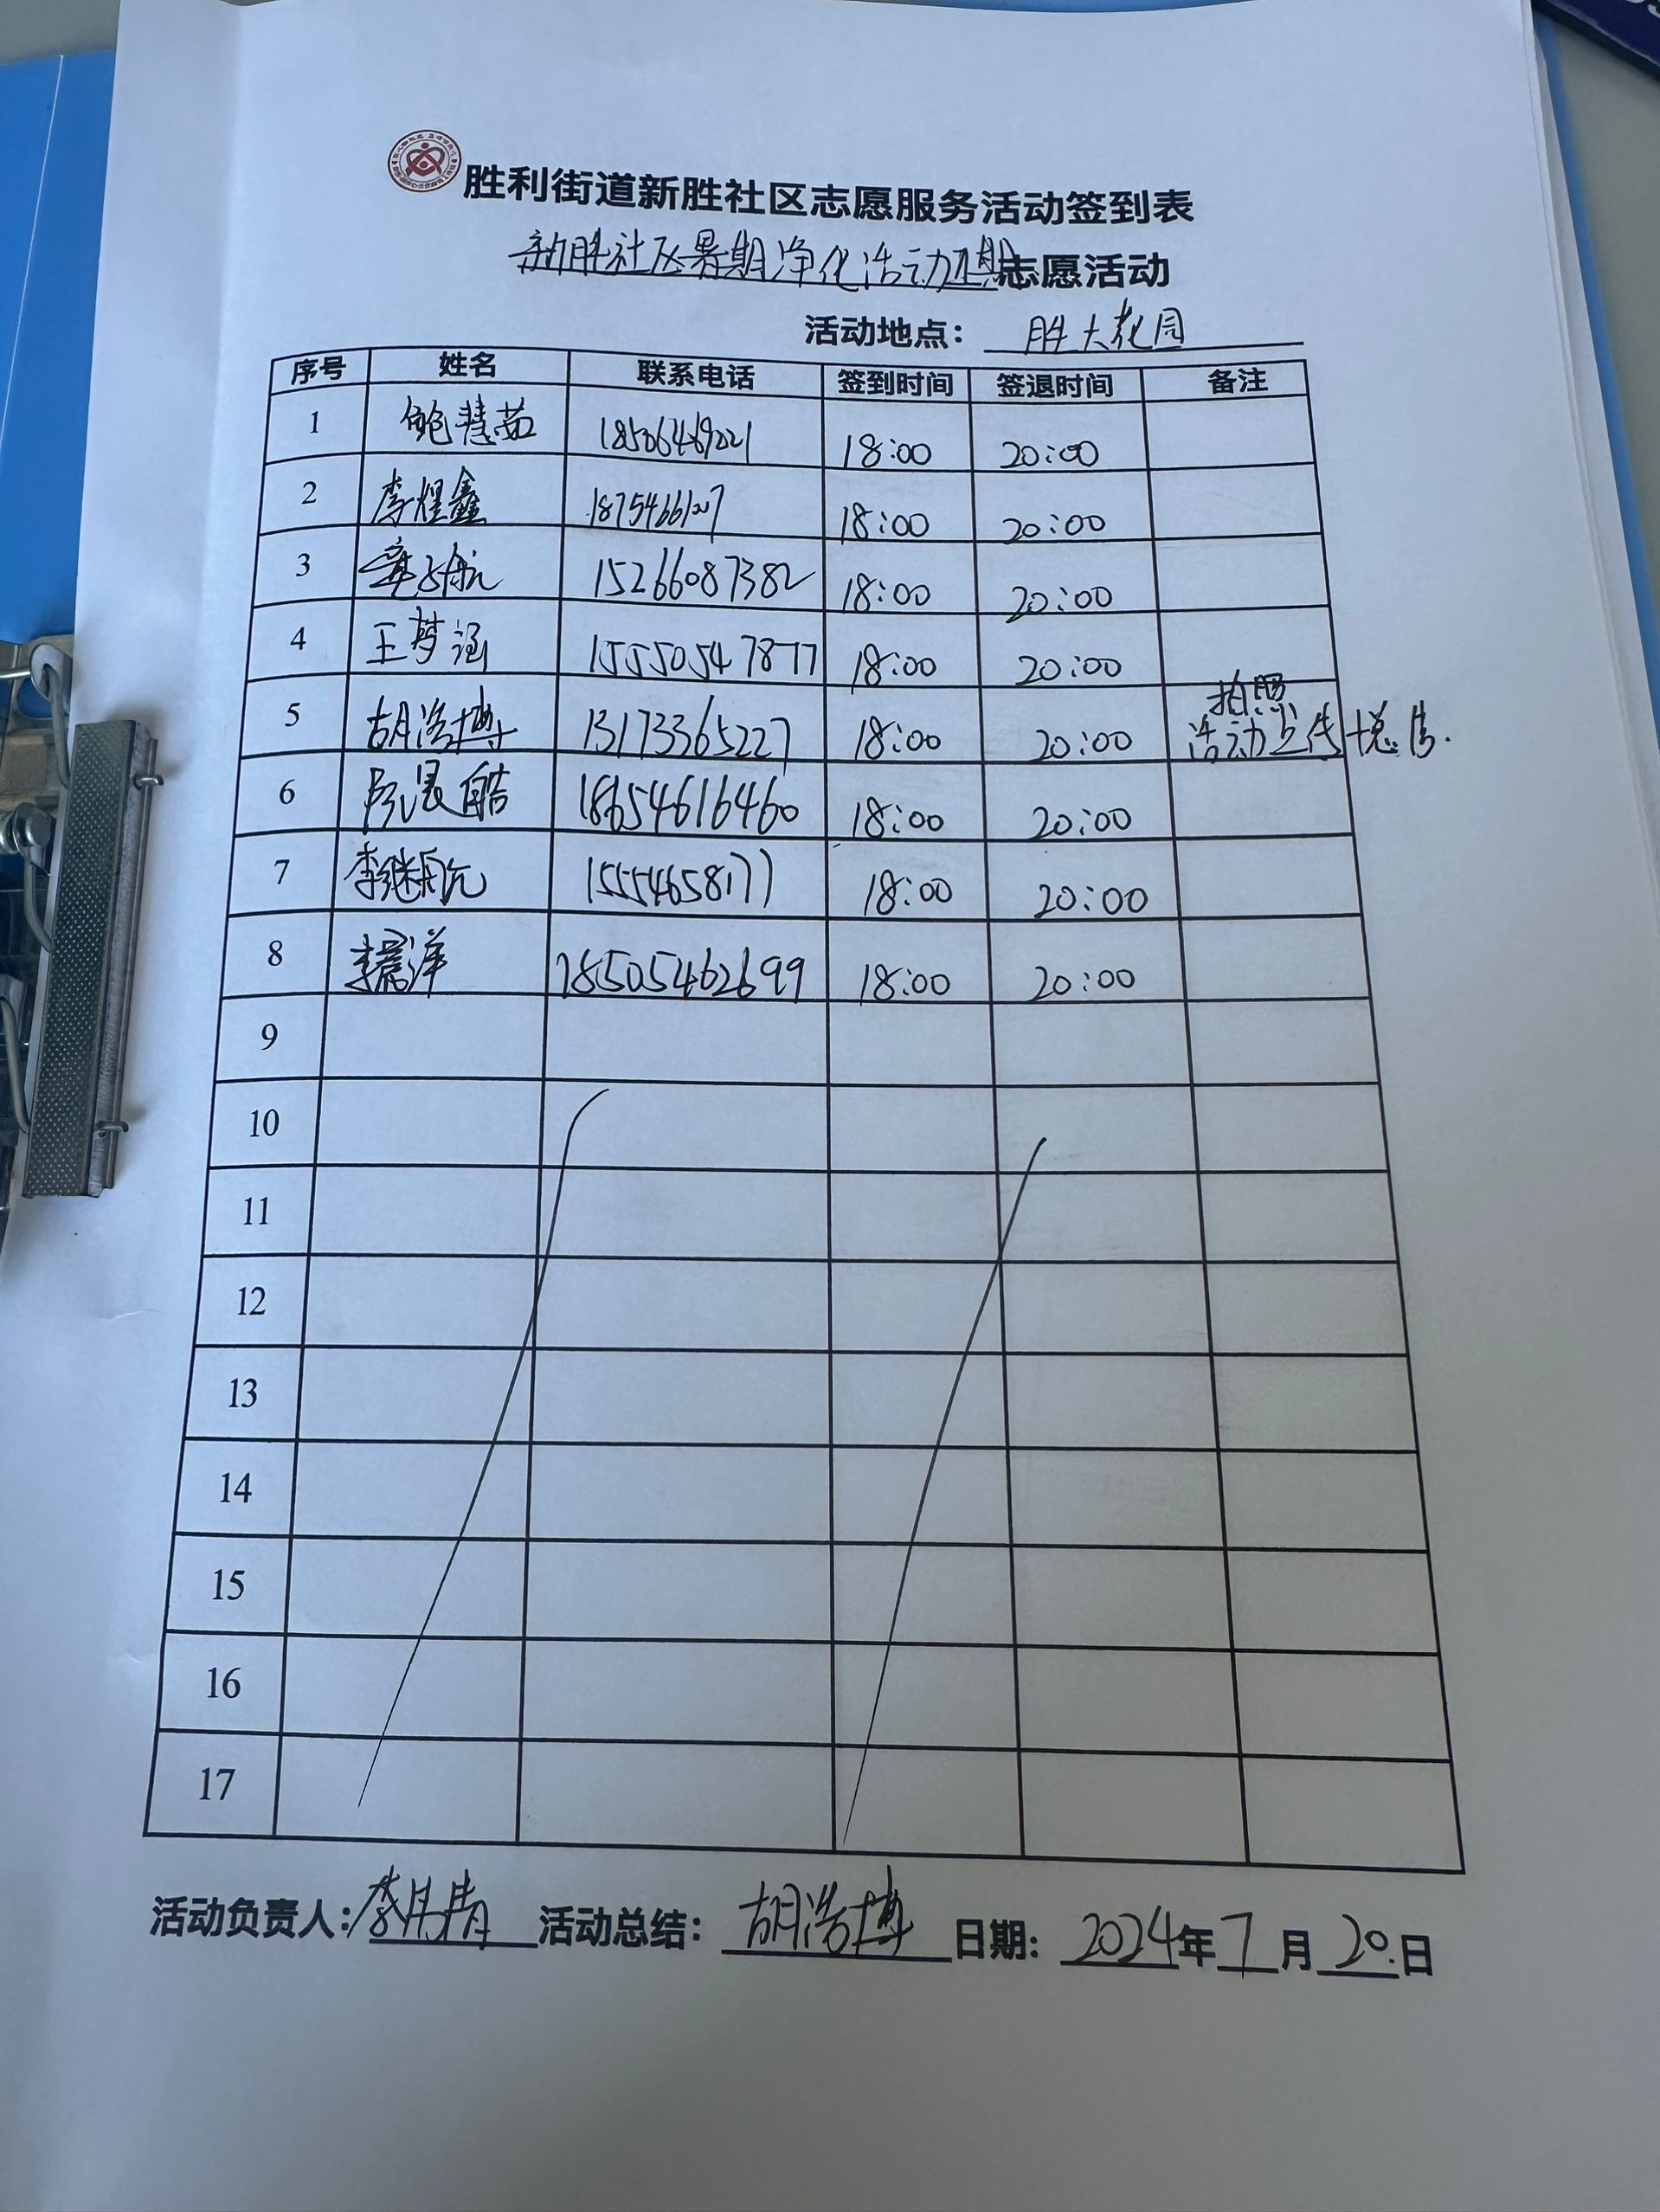 胜利街道新胜社区志愿服务活动签到表
新胜社区暑期净化活动 期志愿活动
活动地点： 胜大花园
序号 姓名 联系电话 签到时间 签退时间 备注
1 鲍慧茹 18:00 20:00
2 李煜鑫 18:00 20:00
3 15266087382 18:00 20:00
4 王梦涵 15550547877 18:00 20:00
5 胡浩博 13173365227 18:00 20:00 拍照
活动上传+总结.
6 18654616460 18:00 20:00
7 李继 15554658177 18:00 20:00
8 洋 18505462699 18:00 20:00
9
10
11
12
13
14
15
16
17
活动负责人: 李 活动总结： 胡浩博 日期: 2024年7月20日